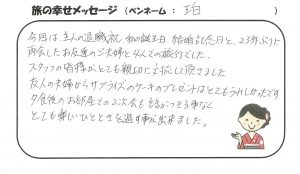 旅の幸せメッセージ (ペンネーム : 珀 )
今回は主人の退職祝、私の誕生日、結婚記念日と、23年ぶりに
再会したお友達のご夫婦と4人での旅行でした。
スタッフの皆様がとても親切に対応して頂きました
友人の夫婦からサプライズのケーキのプレゼントはとてもうれしかったです
夕食後のお部屋での二次会も話がつきる事なく
とても楽しいひとときを過す事が出来ました。